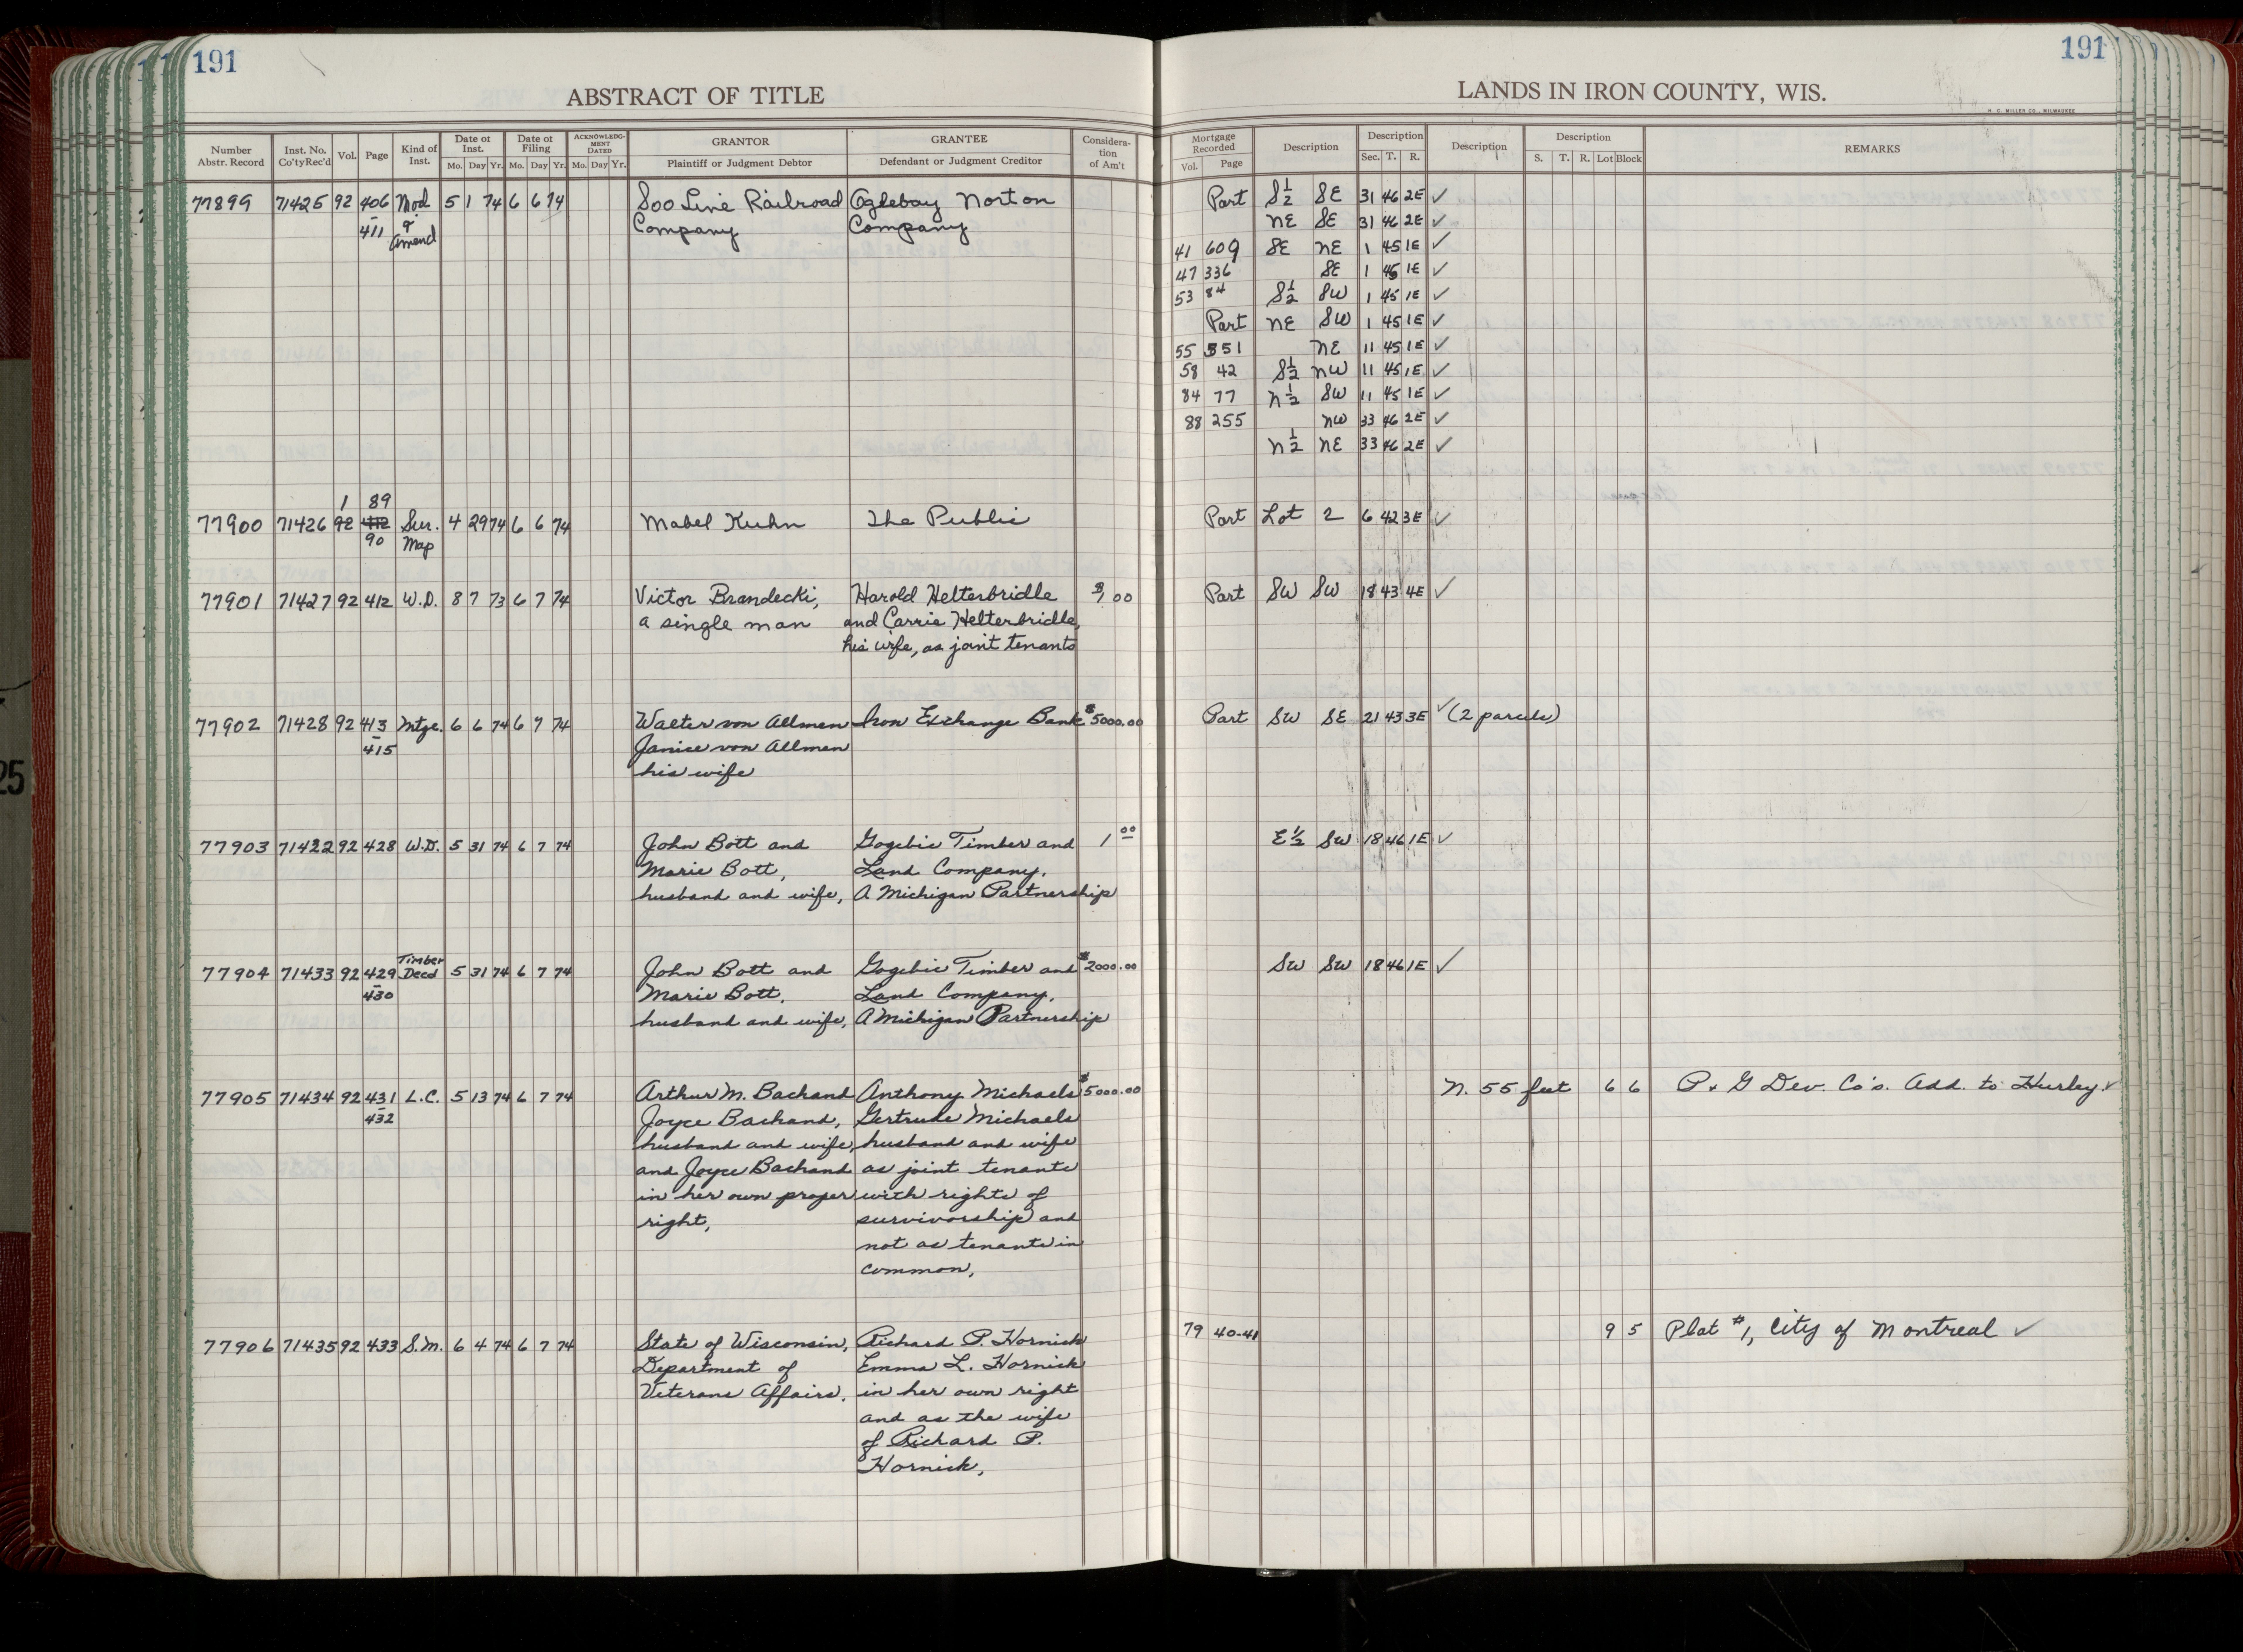 191
ABSTRACT OF TITLE
Number Abstr. Record | Inst. No. Co'ty Rec'd | Vol. | Page | Kind of Inst. | Date of Inst. Mo. Day Yr. | Date of Filing Mo. Day Yr. | ACKNOWLEDGMENT DATED Mo. Day Yr. | GRANTOR Plaintiff or Judgment Debtor | GRANTEE Defendant or Judgment Creditor | Consideration of Am't
77899 71425 92 406 Mod 5 1 74 6 6 74 Soo Line Railroad Oglebay Norton
- 411 & Amend Company Company
1 89
77900 71426 92 412 Sur. 4 29 74 6 6 74 Mabel Kuhn The Public
90 Map
77901 71427 92 412 W.D. 8 7 73 6 7 74 Victor Brandecki, Harold Helterbridle 00
a single man and Carrie Helterbridle,
his wife, as joint tenants
77902 71428 92 413 Mtge. 6 6 74 6 7 74 Walter von Allmen Iron Exchange Bank $5000.00
- 415 Janice von Allmen
his wife
77903 71422 92 428 W.D. 5 31 74 6 7 74 John Bott and Gogebic Timber and 1 00
Marie Bott, Land Company,
husband and wife, A Michigan Partnership
Timber
77904 71433 92 429 Deed 5 31 74 6 7 74 John Bott and Gogebic Timber and $2000.00
- 430 Marie Bott, Land Company,
husband and wife, A Michigan Partnership
77905 71434 92 431 L.C. 5 13 74 6 7 74 Arthur M. Bachand Anthony Michaels $5000.00
- 432 Joyce Bachand, Gertrude Michaels
husband and wife, husband and wife
and Joyce Bachand as joint tenants
in her own proper with rights of
right, survivorship and
not as tenants in
common,
77906 71435 92 433 S.M. 6 4 74 6 7 74 State of Wisconsin, Richard P. Hornick
Department of Emma L. Hornick
Veterans Affairs, in her own right
and as the wife
of Richard P.
Hornick,
191
LANDS IN IRON COUNTY, WIS.
H. C. MILLER CO., MILWAUKEE
Mortgage Recorded Vol. Page | Description | Description Sec. T. R. | Description | Description S. T. R. Lot Block | REMARKS
Part S½ SE 31 46 2E ✓
NE SE 31 46 2E ✓
41 609 SE NE 1 45 1E ✓
47 336 SE 1 45 1E ✓
53 84 S½ SW 1 45 1E ✓
Part NE SW 1 45 1E ✓
55 551 NE 11 45 1E ✓
58 42 S½ NW 11 45 1E ✓
84 77 N½ SW 11 45 1E ✓
88 255 NW 33 46 2E ✓
N½ NE 33 46 2E ✓
Part Lot 2 6 42 3E ✓
Part SW SW 18 43 4E ✓
Part SW SE 21 43 3E ✓ (2 parcels)
E½ SW 18 46 1E ✓
SW SW 18 46 1E ✓
N. 55 feet 6 6 P. & G Dev. Co's. Add. to Hurley ✓
79 40-41 9 5 Plat #1, City of Montreal ✓